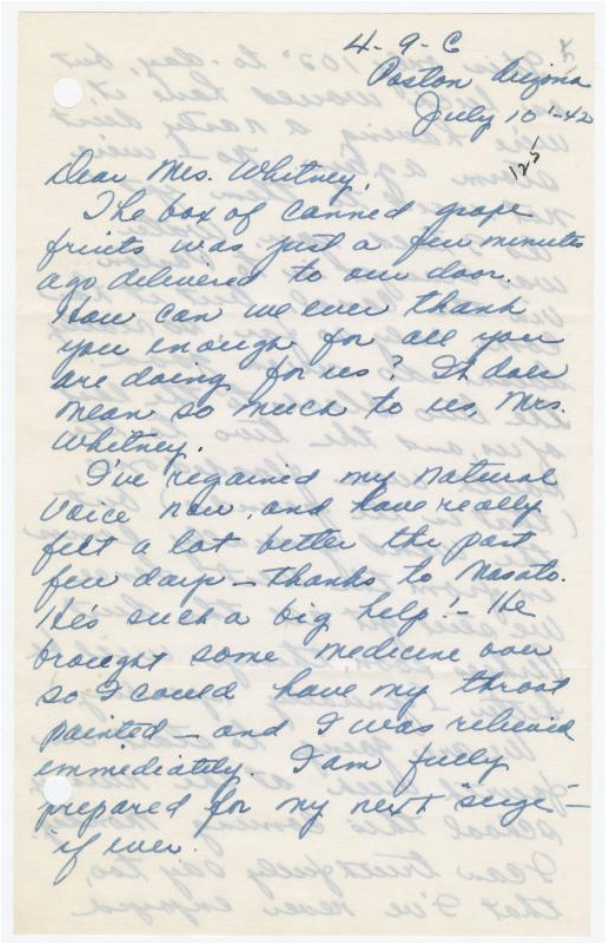 4-9-C
Poston Arizona
July 10'-42
125
Dear Mrs. Whitney,
The box of canned grape
fruits was just a few minutes
ago delivered to our door.
How can we ever thank
you enough for all you
are doing for us? It does
mean so much to us, Mrs.
Whitney.
I've regained my natural
voice now, and have really
felt a lot better the past
few days - thanks to Masato.
He's such a big help! - He
brought some medicine over
so I could have my throat
painted - and I was relieved
immediately. I am fully
prepared for my next "seige" -
if ever.